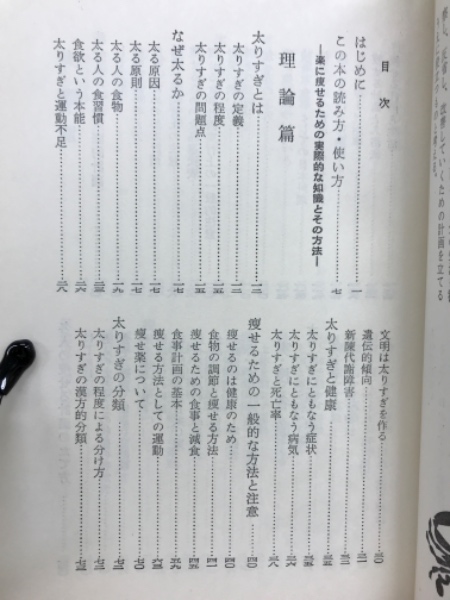 目次
はじめに……一
この本の読み方・使い方……七
―楽に痩せるための実際的な知識とその方法―
理論篇
太りすぎとは……一三
太りすぎの定義……一三
太りすぎの程度……一五
太りすぎの問題点……一五
なぜ太るか……一七
太る原因……一七
太る原則……一七
太る人の食物……一九
太る人の食習慣……二二
食欲という本能……二六
太りすぎと運動不足……二八
文明は太りすぎを作る……三〇
遺伝的傾向……三一
新陳代謝障害……三三
太りすぎと健康……三五
太りすぎにともなう症状……三五
太りすぎにともなう病気……三六
太りすぎと死亡率……三八
痩せるための一般的な方法と注意……四〇
痩せるのは健康のため……四〇
食物の調節と痩せる方法……四一
痩せるための食事と減食……四五
食事計画の基本……五九
痩せる方法としての運動……六三
痩せ薬について……七〇
太りすぎの分類……七二
太りすぎの程度による分け方……七二
太りすぎの漢方的分類……七三